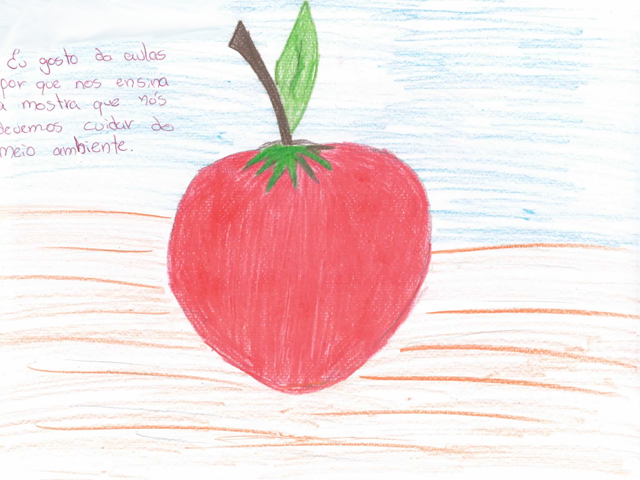 Eu gosto da aulas
por que nos ensina
a mostra que nós
devemos cuidar do
meio ambiente.